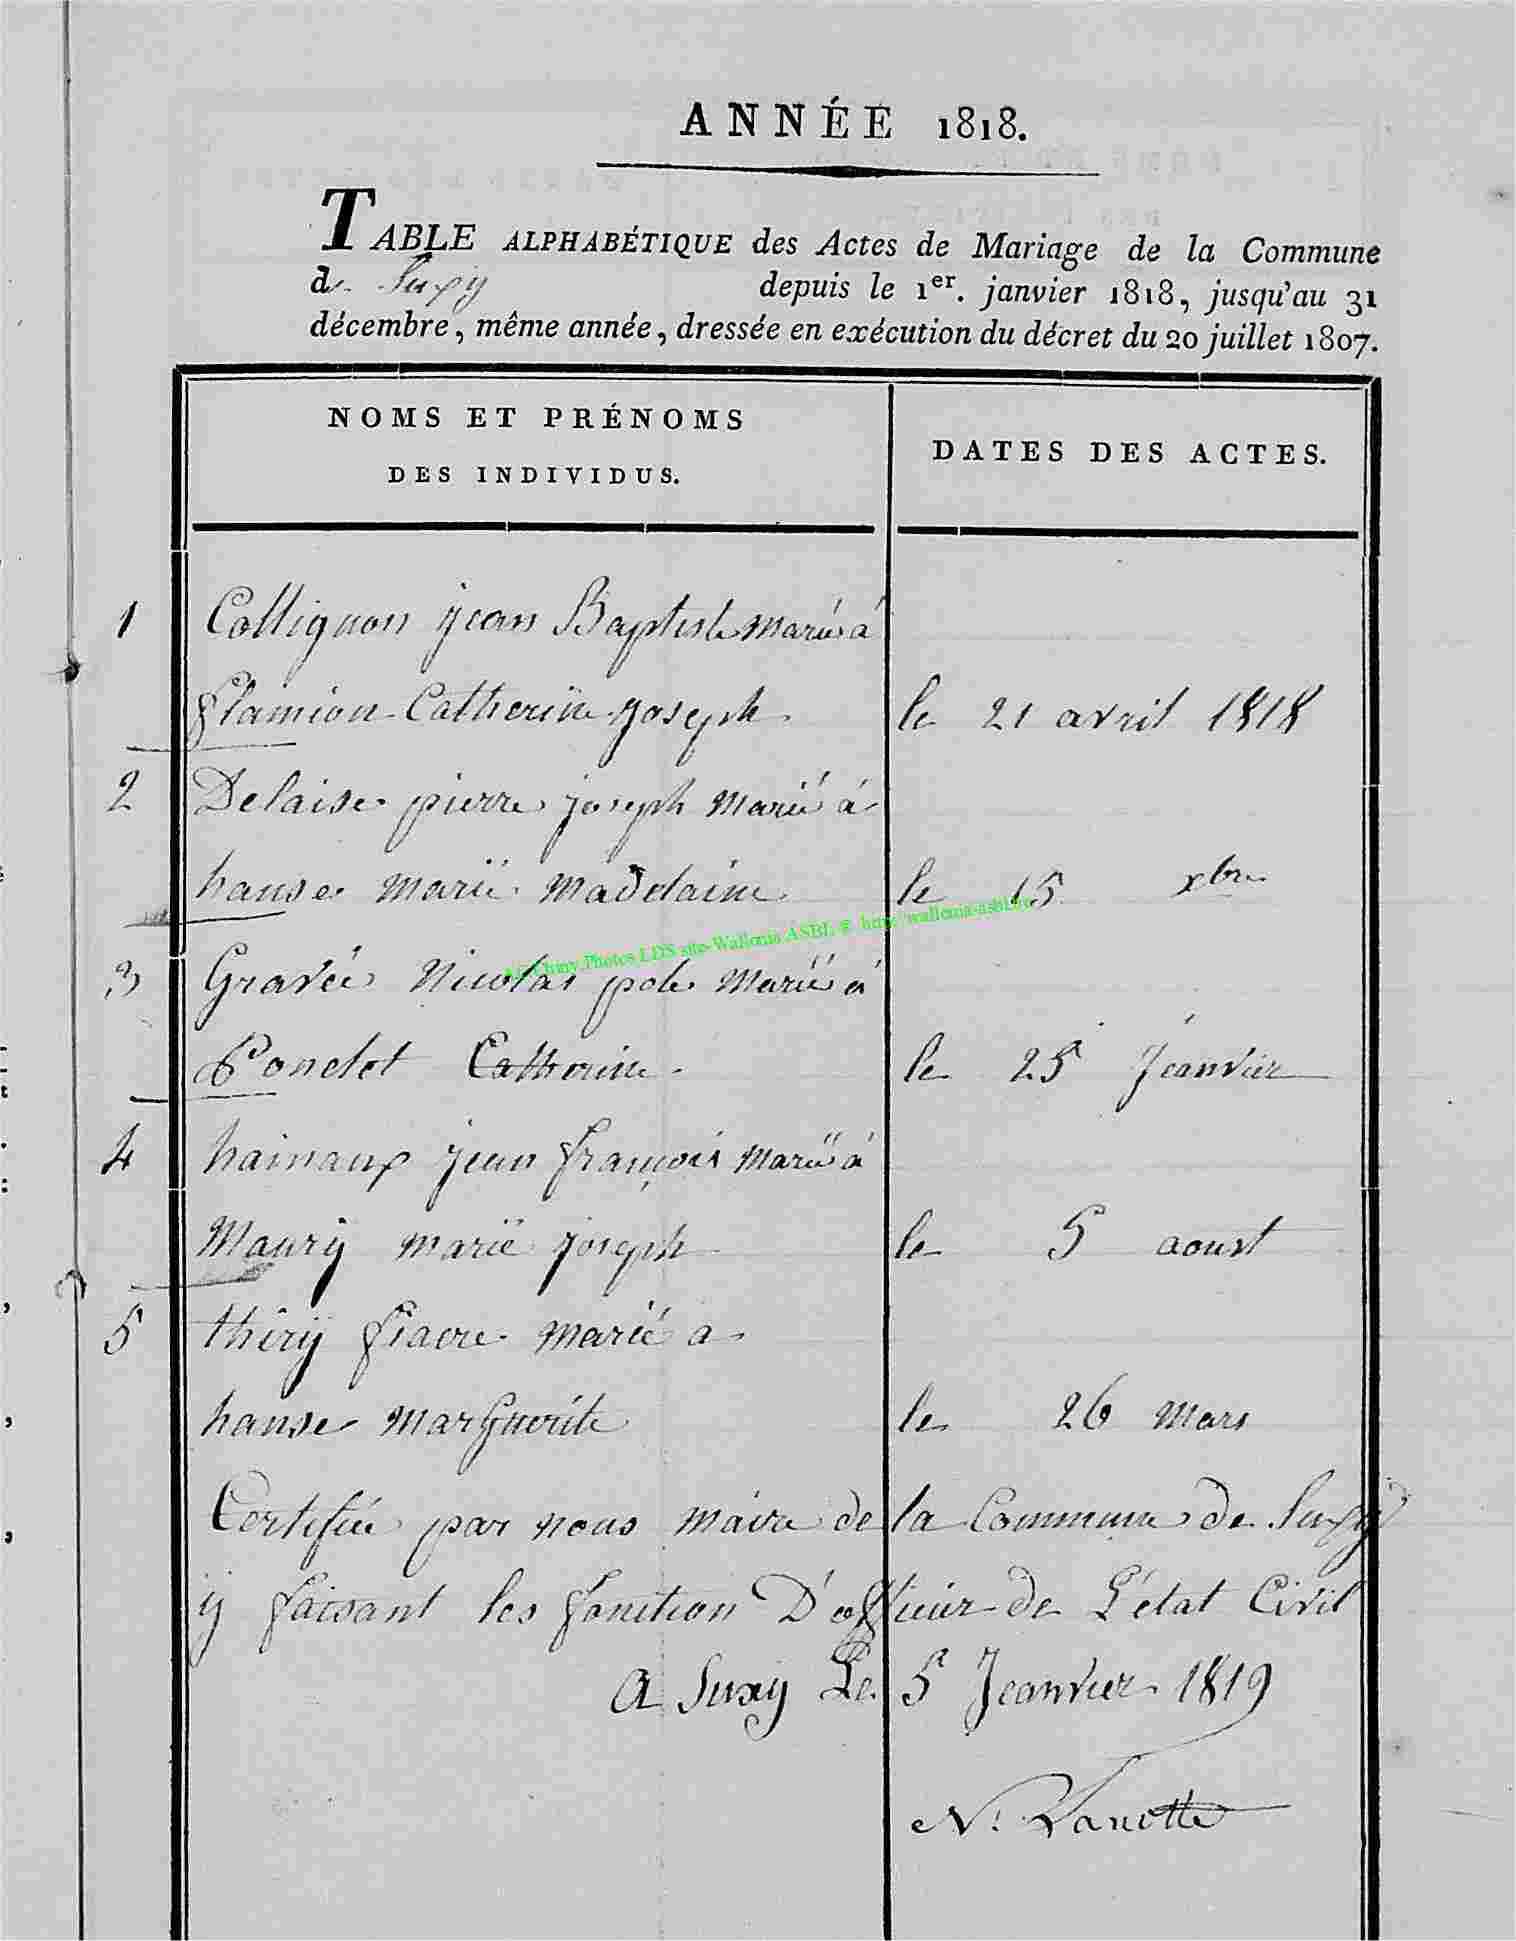 ANNÉE 1818.
TABLE ALPHABÉTIQUE des Actes de Mariage de la Commune
de Suxy depuis le 1er. janvier 1818, jusqu'au 31
décembre, même année, dressée en exécution du décret du 20 juillet 1807.
NOMS ET PRÉNOMS
DES INDIVIDUS.
DATES DES ACTES.
1 Collignon jean Baptiste marié á
flamion Catherine joseph le 21 avril 1818
2 Delaise pierre joseph marié á
hanse marie madelaine le 15 xbre
Photos LDS site-Wallonia ASBL @
3 Gravée Nicolas marié á
Poncelet Catherine le 25 Jeanvier
4 hainaux jean françois marié á
Maury marie joseph le 5 aoust
5 thiry fiacre marié a
hanse marguerite le 26 mars
Certifiée par nous maire de la Commune de Suxy
y faisant les fonction D'officier de L'état Civil
a Suxy Le 5 Jeanvier 1819
N. Lanotte